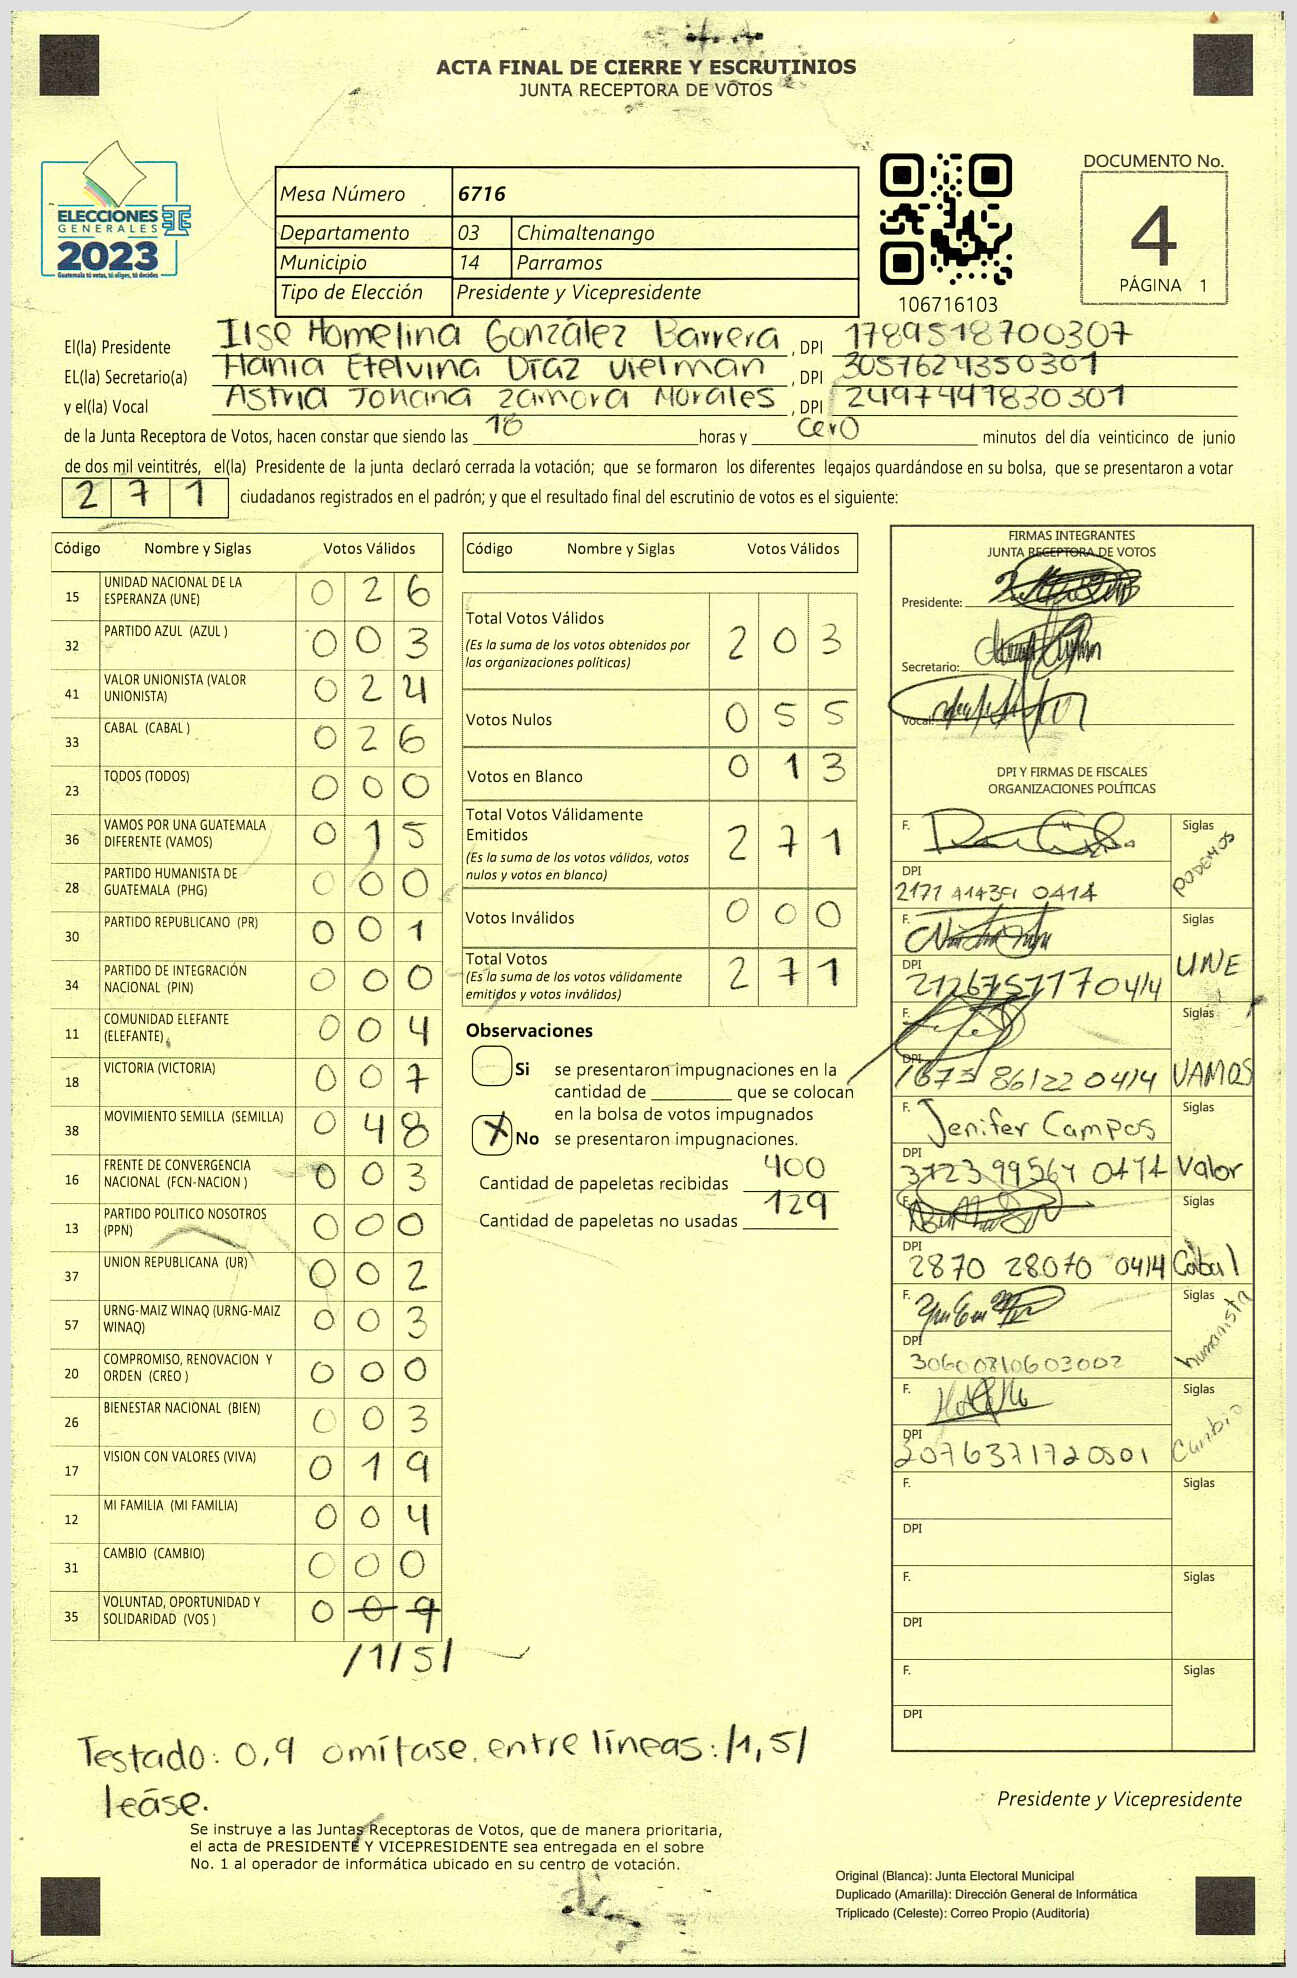 ACTA FINAL DE CIERRE Y ESCRUTINIOS
JUNTA RECEPTORA DE VOTOS
ELECCIONES
GENERALES
2023
Guatemala tú votas, tú eliges, tú decides
Mesa Número 6716
Departamento 03 Chimaltenango
Municipio 14 Parramos
Tipo de Elección Presidente y Vicepresidente
106716103
DOCUMENTO No.
4
PÁGINA 1
El(la) Presidente Ilse Homelina González Barrera , DPI 1789518700307
EL(la) Secretario(a) Hania Etelvina Díaz Vielman , DPI 3057624350301
y el(la) Vocal Astrid Johana Zamora Morales , DPI 2497441830301
de la Junta Receptora de Votos, hacen constar que siendo las 18 horas y cero minutos del día veinticinco de junio
de dos mil veintitrés, el(la) Presidente de la junta declaró cerrada la votación; que se formaron los diferentes legajos guardándose en su bolsa, que se presentaron a votar
271 ciudadanos registrados en el padrón; y que el resultado final del escrutinio de votos es el siguiente:
Código Nombre y Siglas Votos Válidos
15 UNIDAD NACIONAL DE LA ESPERANZA (UNE) 0 2 6
32 PARTIDO AZUL (AZUL ) 0 0 3
41 VALOR UNIONISTA (VALOR UNIONISTA) 0 2 4
33 CABAL (CABAL ) 0 2 6
23 TODOS (TODOS) 0 0 0
36 VAMOS POR UNA GUATEMALA DIFERENTE (VAMOS) 0 1 5
28 PARTIDO HUMANISTA DE GUATEMALA (PHG) 0 0 0
30 PARTIDO REPUBLICANO (PR) 0 0 1
34 PARTIDO DE INTEGRACIÓN NACIONAL (PIN) 0 0 0
11 COMUNIDAD ELEFANTE (ELEFANTE) 0 0 4
18 VICTORIA (VICTORIA) 0 0 7
38 MOVIMIENTO SEMILLA (SEMILLA) 0 4 8
16 FRENTE DE CONVERGENCIA NACIONAL (FCN-NACION ) 0 0 3
13 PARTIDO POLITICO NOSOTROS (PPN) 0 0 0
37 UNION REPUBLICANA (UR) 0 0 2
57 URNG-MAIZ WINAQ (URNG-MAIZ WINAQ) 0 0 3
20 COMPROMISO, RENOVACION Y ORDEN (CREO ) 0 0 0
26 BIENESTAR NACIONAL (BIEN) 0 0 3
17 VISION CON VALORES (VIVA) 0 1 9
12 MI FAMILIA (MI FAMILIA) 0 0 4
31 CAMBIO (CAMBIO) 0 0 0
35 VOLUNTAD, OPORTUNIDAD Y SOLIDARIDAD (VOS ) 0 0 9
/1/5/
Código Nombre y Siglas Votos Válidos
Total Votos Válidos 2 0 3
(Es la suma de los votos obtenidos por
las organizaciones políticas)
Votos Nulos 0 5 5
Votos en Blanco 0 1 3
Total Votos Válidamente
Emitidos 2 7 1
(Es la suma de los votos válidos, votos
nulos y votos en blanco)
Votos Inválidos 0 0 0
Total Votos 2 7 1
(Es la suma de los votos válidamente
emitidos y votos inválidos)
Observaciones
Si se presentaron impugnaciones en la
cantidad de ________ que se colocan
en la bolsa de votos impugnados
X No se presentaron impugnaciones.
Cantidad de papeletas recibidas 400
Cantidad de papeletas no usadas 129
FIRMAS INTEGRANTES
JUNTA RECEPTORA DE VOTOS
Presidente:
Secretario:
Vocal:
DPI Y FIRMAS DE FISCALES
ORGANIZACIONES POLÍTICAS
F. Siglas PODEMOS
DPI
F. Siglas UNE
DPI
F. Siglas VAMOS
DPI 1673 86122 0414
F. Jenifer Campos Siglas Valor
DPI
F. Siglas Cabal
DPI 2870 28070 0414
F. Siglas humanista
DPI 30600810603002
F. Siglas Cambio
DPI 2076371720501
F. Siglas
DPI
F. Siglas
DPI
F. Siglas
DPI
Testado: 0,9 omítase. entre líneas: /1,5/
léase.
Presidente y Vicepresidente
Se instruye a las Juntas Receptoras de Votos, que de manera prioritaria,
el acta de PRESIDENTE Y VICEPRESIDENTE sea entregada en el sobre
No. 1 al operador de informática ubicado en su centro de votación.
Original (Blanca): Junta Electoral Municipal
Duplicado (Amarilla): Dirección General de Informática
Triplicado (Celeste): Correo Propio (Auditoría)